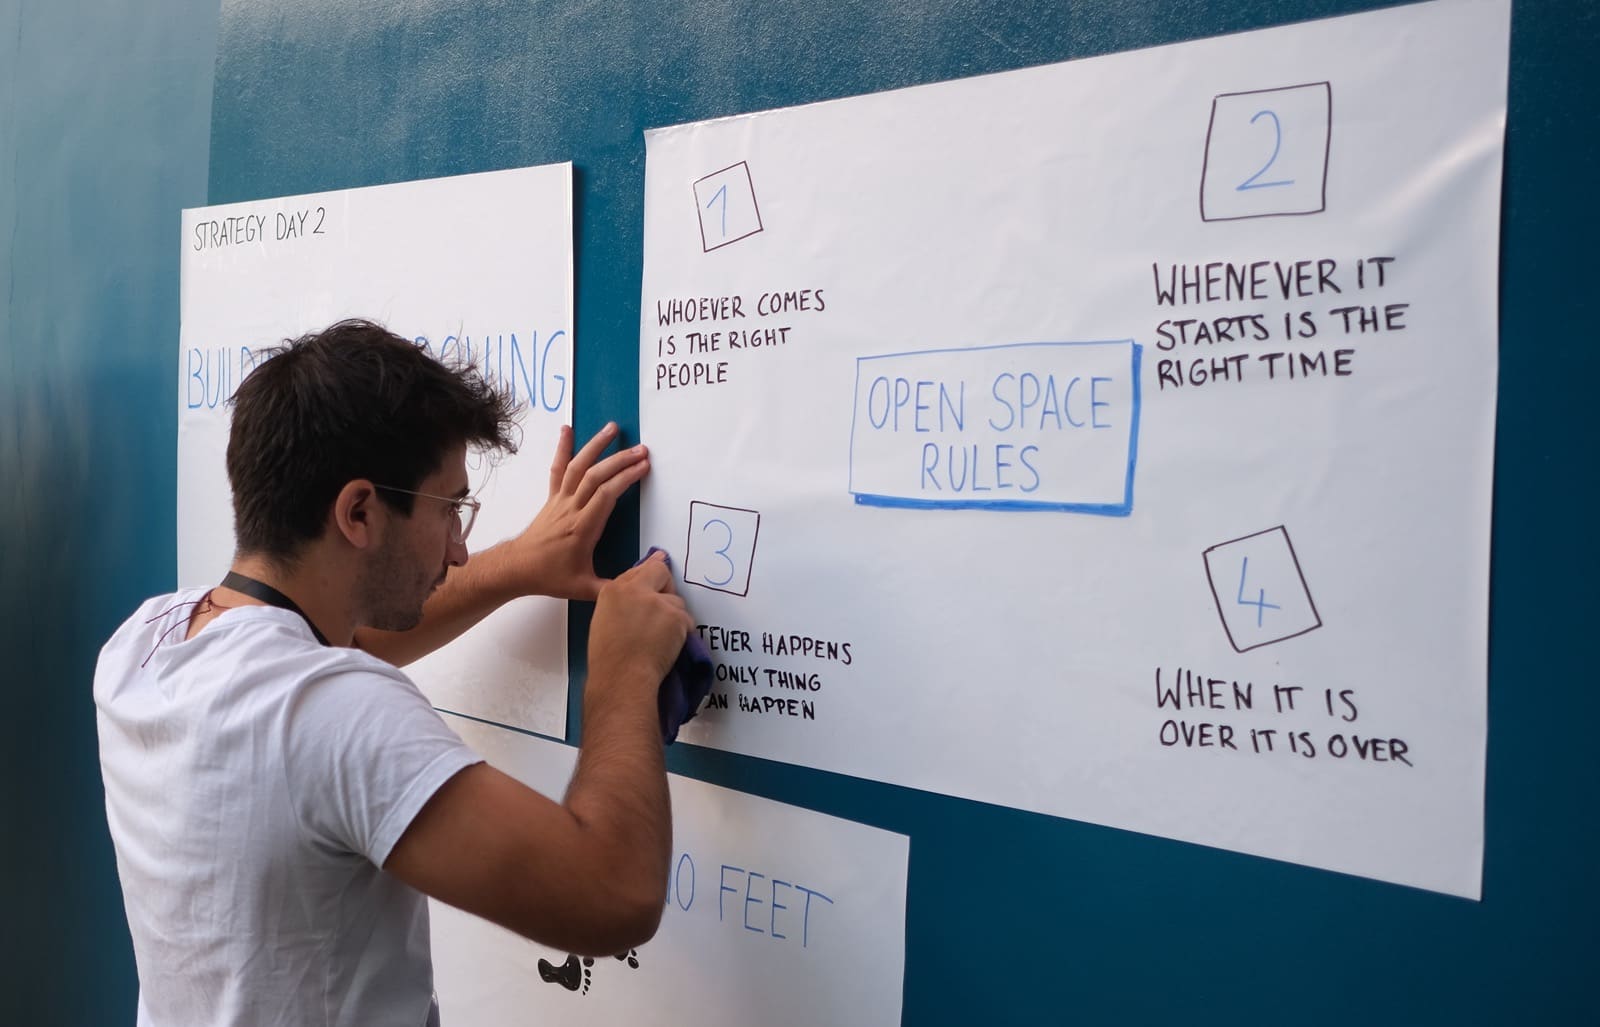 STRATEGY DAY 2
1
WHOEVER COMES
IS THE RIGHT
PEOPLE
2
WHENEVER IT
STARTS IS THE
RIGHT TIME
OPEN SPACE
RULES
3
HAPPENS
ONLY THING
HAPPEN
4
WHEN IT IS
OVER IT IS OVER
FEET